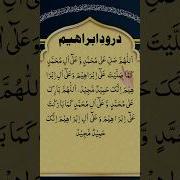 درود ابراهیم
اَللّٰهُمَّ صَلِّ عَلٰى مُحَمَّدٍ وَّ عَلٰٓى اٰلِ مُحَمَّدٍ
كَمَا صَلَّيْتَ عَلٰٓى اِبْرَاهِيْمَ وَ عَلٰٓى اٰلِ اِبْرَا
هِيْمَ اِنَّكَ حَمِيْدٌ مَّجِيْدٌ. اَللّٰهُمَّ بَارِكْ
عَلٰى مُحَمَّدٍ وَّ عَلٰٓى اٰلِ مُحَمَّدٍ كَمَا بَارَكْتَ
عَلٰٓى اِبْرَاهِيْمَ وَ عَلٰٓى اٰلِ اِبْرَاهِيْمَ اِنَّكَ
حَمِيْدٌ مَّجِيْدٌ